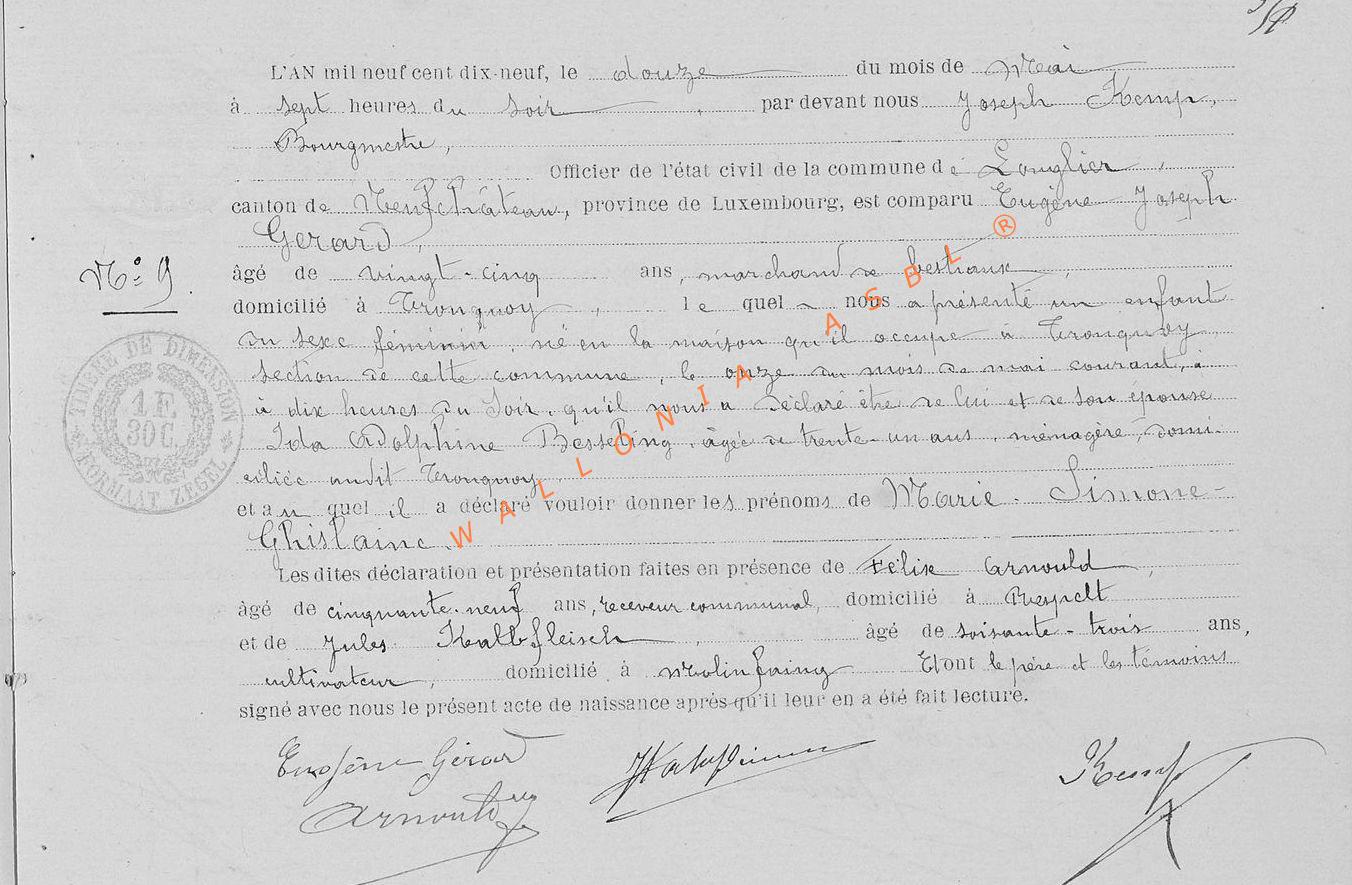 L'AN mil neuf cent dix-neuf, le douze du mois de Mai
à sept heures du soir, par devant nous Joseph Kemp,
Bourgmestre,
Officier de l'état civil de la commune de Longlier,
canton de Neufchâteau, province de Luxembourg, est comparu Eugène Joseph
Gerard,
N° 9.
âgé de vingt-cinq ans, marchand de bestiaux,
domicilié à Tronquoy, le quel nous a présenté un enfant
du sexe féminin, né en la maison qu'il occupe à Tronquoy
section de cette commune, le onze du mois de mai courant, à
à dix heures du Soir, qu'il nous a déclaré être de lui et de son épouse
Ida Adolphine Besseling, âgée de trente-un ans, ménagère, domi-
ciliée audit Tronquoy,
et au quel il a déclaré vouloir donner les prénoms de Marie-Simone-
Ghislaine.
Les dites déclaration et présentation faites en présence de Félix Arnould,
âgé de cinquante-neuf ans, receveur communal, domicilié à Respelt
et de Jules Kalbfleisch, âgé de soisante-trois ans,
cultivateur, domicilié à Molinfaing Etont le père et les témoins
signé avec nous le présent acte de naissance après qu'il leur en a été fait lecture.
Eugène Gérard
Arnould
Kemp
TIMBRE DE DIMENSION
1 F.
30 C.
FORMAAT ZEGEL
WALLONIA ASBL ®